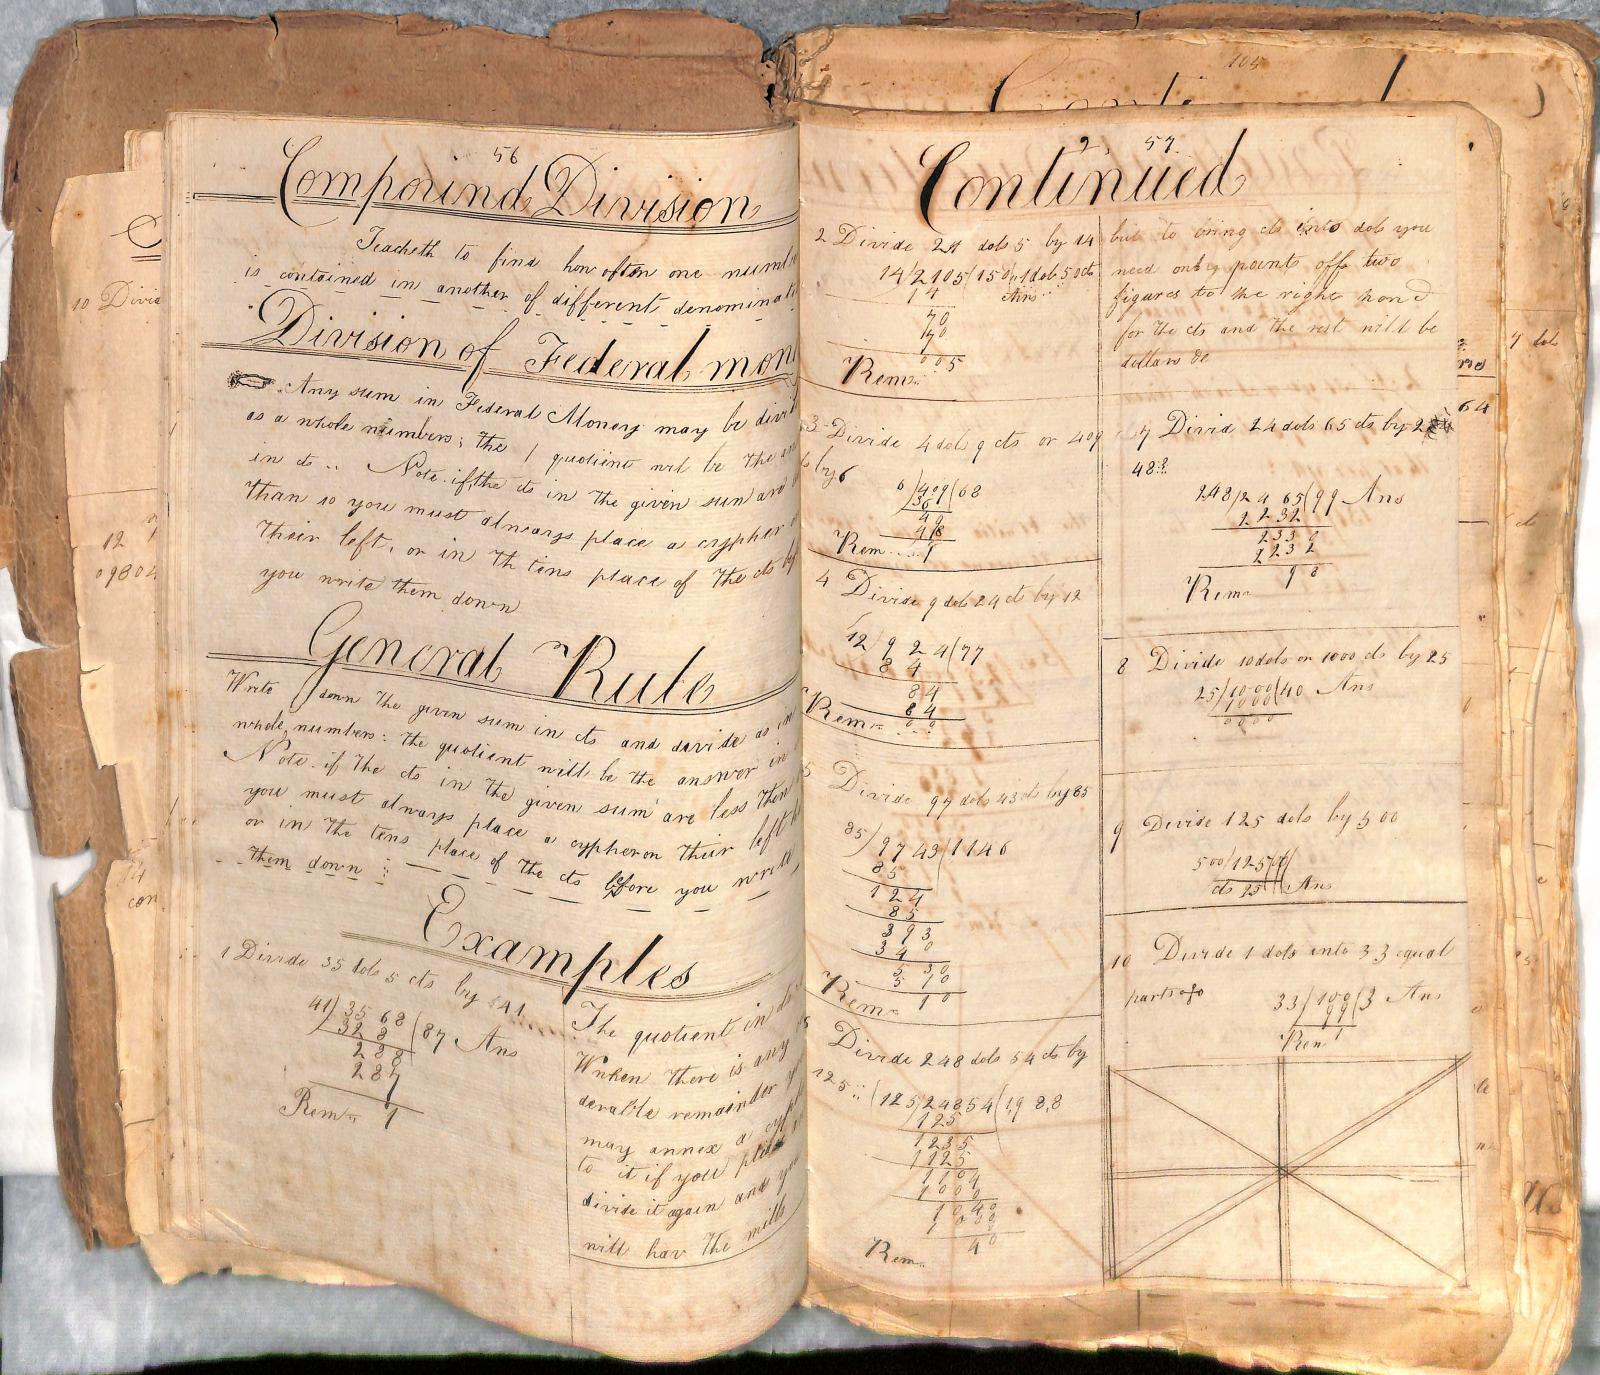 56
Compound Division
Teacheth to find how often one numbe
is contained in another of different denominat
Division of Federal mon
Any sum in Federal Money may be divi
as a whole numbers; the quotient wil be the
in cts .. Note. if the cts in the given sum are
than 10 you must always place a cypher
their left, or in th tens place of the cts
you write them down
General Rule
Write down the given sum in cts and divide as in
whole numbers: the quotient will be the answer in
Note. if the cts in the given sum are less then
you must always place a cypher on their left
or in the tens place of the cts before you write
them down
Examples
1 Divide 35 dols 5 cts by 41
41/3568(87 Ans
328
288
287
Rem 1
The quotient in
When there is any
derable remainder
may annex a cyp
to it if you please
divide it again and you
will hav the mills
104
Continued
57
Continued
2 Divide 21 dols 5 by 14
14/2105/150,,1dol 50cts
14 Ans
70
70
Rem 005
3 Divide 4 dols 9 cts or 409
by 6
6/409(68
36
49
48
Rem 1
4 Divide 9 dols 24 cts by 12
12/924(77
84
84
84
Rem 00
5 Divide 97 dols 43 cts by 85
85/9743/1146
85
124
85
393
340
530
510
Rem 10
Divide 248 dols 54 cts by
125
125/24854(1,98,8
125
1235
1125
1104
1000
1040
1000
Rem 40
but to bring cts into dols you
need only points off two
figures to the right hand
for the cts and the rest will be
dollars &c
7 Divid 24 dols 65 cts by 2
48
248/2465(99 Ans
2232
2330
2232
Rem 98
8 Divide 10 dols or 1000 cts by 25
25/1000(40 Ans
1000
0000
9 Divide 125 dols by 500
500/12500(
cts 25 Ans
10 Divide 1 dols into 33 equal
parts
33/100(3 Ans
99
Rem 1
10 Divid
12
09804
con
64